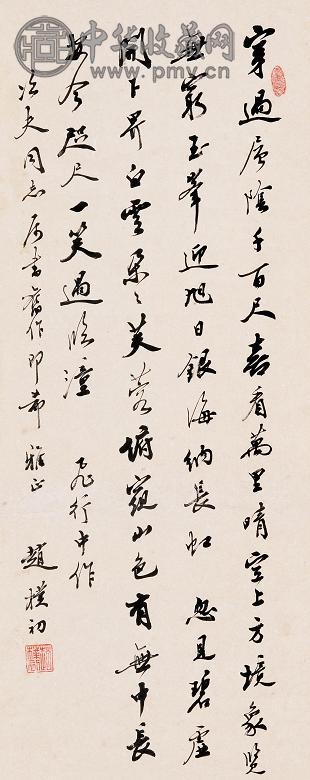 中华收藏网
www.pmyv.cn
穿過層陰千百尺喜看萬里晴空上方境象覽
無窮玉峯迎旭日銀海納長虹 忽見碧虛
開下界白雲朵〻芙蓉俯窺山色有無中長
安今咫尺一笑過臨潼 飛行中作
夫同志属書舊作即希雅正 趙樸初